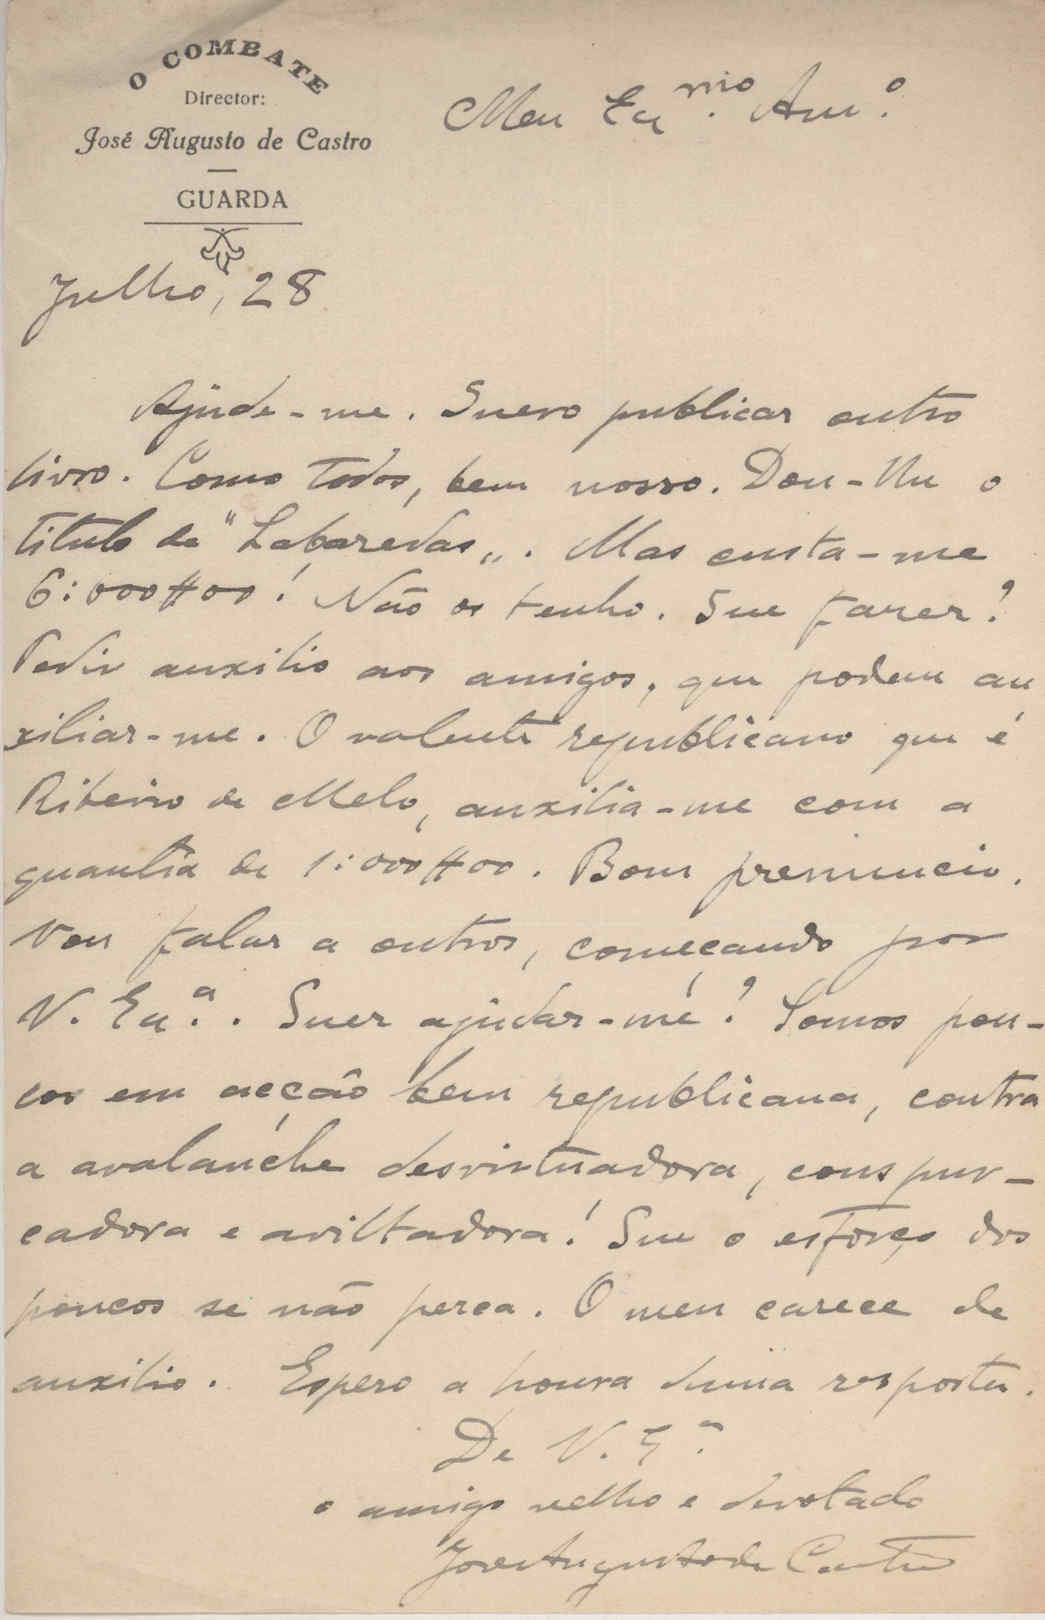 O COMBATE
Director:
José Augusto de Castro
GUARDA
Meu Exmo. Amo.
Julho, 28
Ajude-me. Quero publicar outro
livro. Como todos, bem nosso. Dou-lhe o
titulo de "Labaredas„. Mas custa-me
6:000$00! Não os tenho. Que fazer?
Pedir auxilio aos amigos, que podem au
xiliar-me. O valente republicano que é
Ribeiro de Melo, auxilia-me com a
quantia de 1:000$00. Bom prenuncio.
Vou falar a outros, começando por
V. Exa.. Quer ajudar-me? Somos pou-
cos em acção bem republicana, contra
a avalanche desvirtuadora, conspur-
cadora e aviltadora! Que o esforço dos
poucos se não perca. O meu carece de
auxilio. Espero a honra duma resposta.
De V. Ea.
o amigo velho e devotado
José Augusto de Castro